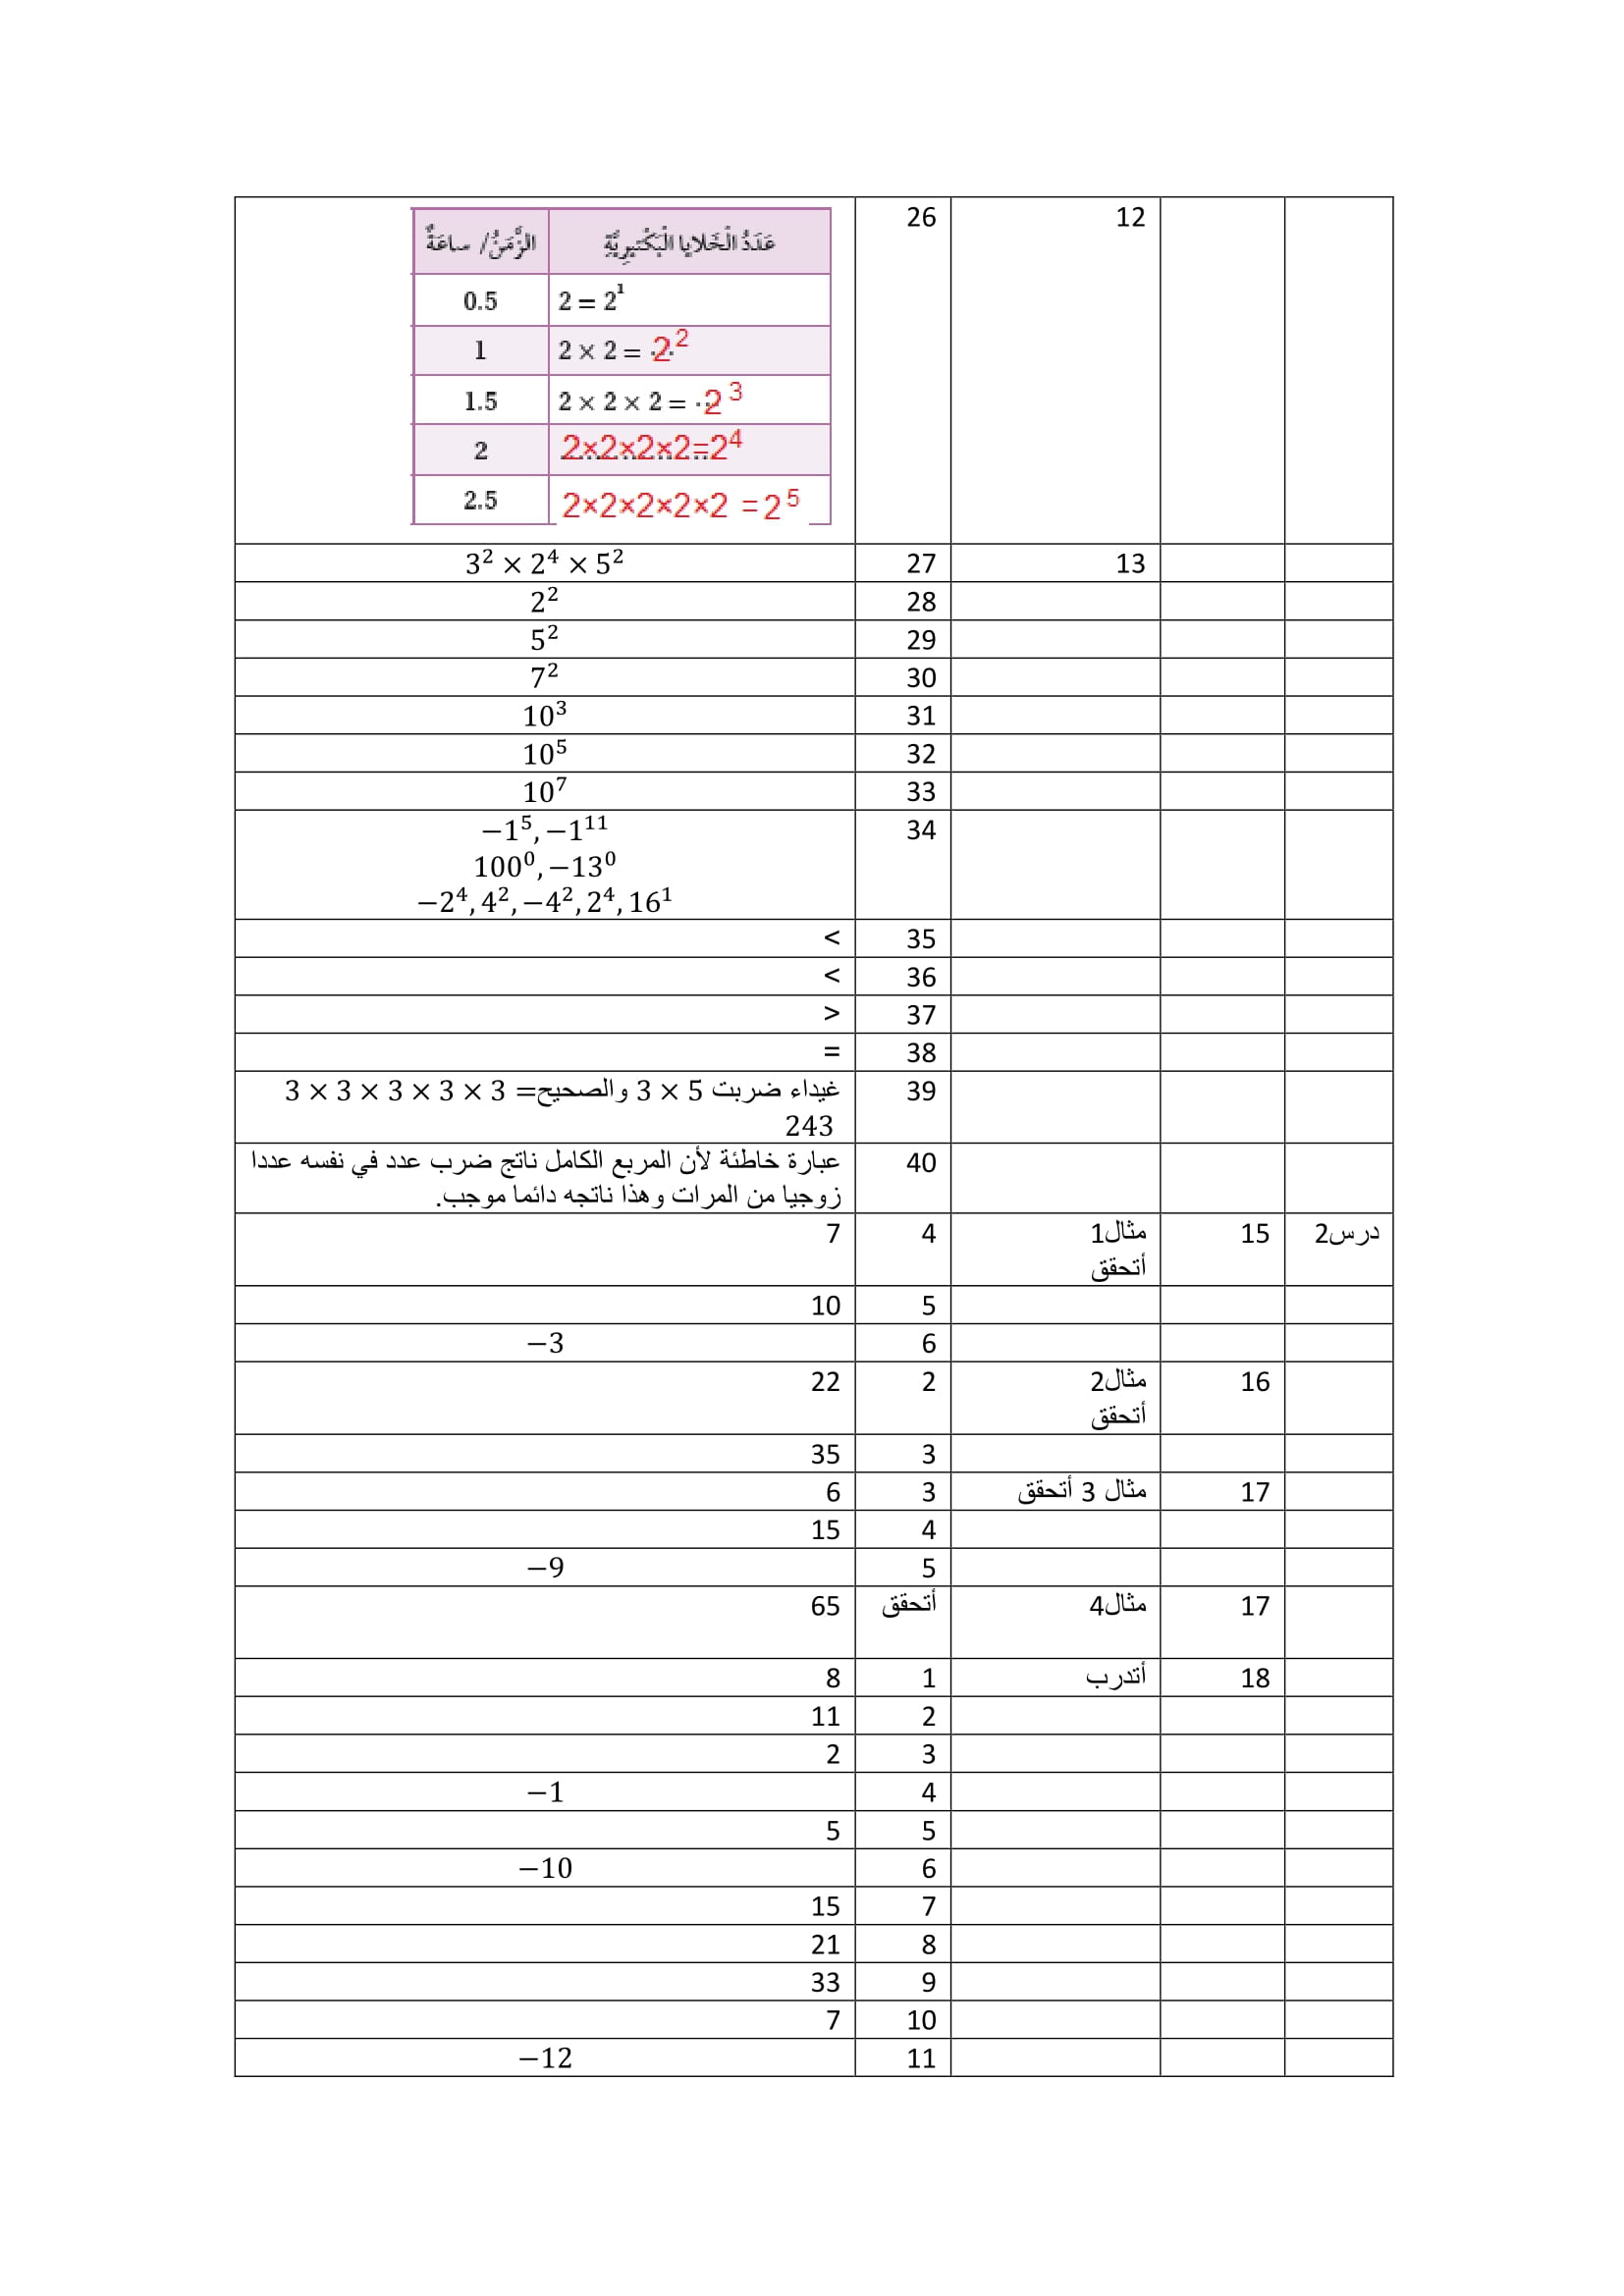 12 26
الزَّمَنُ/ ساعَةٌ عَدَدُ الْخَلايا الْبَكْتيرِيَّةِ
0.5 2 = 2¹
1 2 × 2 = 2²
1.5 2 × 2 × 2 = 2³
2 2×2×2×2=2⁴
2.5 2×2×2×2×2 =2⁵
13 27 3² × 2⁴ × 5²
28 2²
29 5²
30 7²
31 10³
32 10⁵
33 10⁷
34 −1⁵, −1¹¹
100⁰, −13⁰
−2⁴, 4², −4², 2⁴, 16¹
35 <
36 <
37 >
38 =
39 غيداء ضربت 5 × 3 والصحيح= 3 × 3 × 3 × 3 × 3
243
40 عبارة خاطئة لأن المربع الكامل ناتج ضرب عدد في نفسه عددا
زوجيا من المرات وهذا ناتجه دائما موجب.
درس2 15 مثال1 4 7
أتحقق
5 10
6 −3
16 مثال2 2 22
أتحقق
3 35
17 مثال 3 أتحقق 3 6
4 15
5 −9
17 مثال4 أتحقق 65
18 أتدرب 1 8
2 11
3 2
4 −1
5 5
6 −10
7 15
8 21
9 33
10 7
11 −12